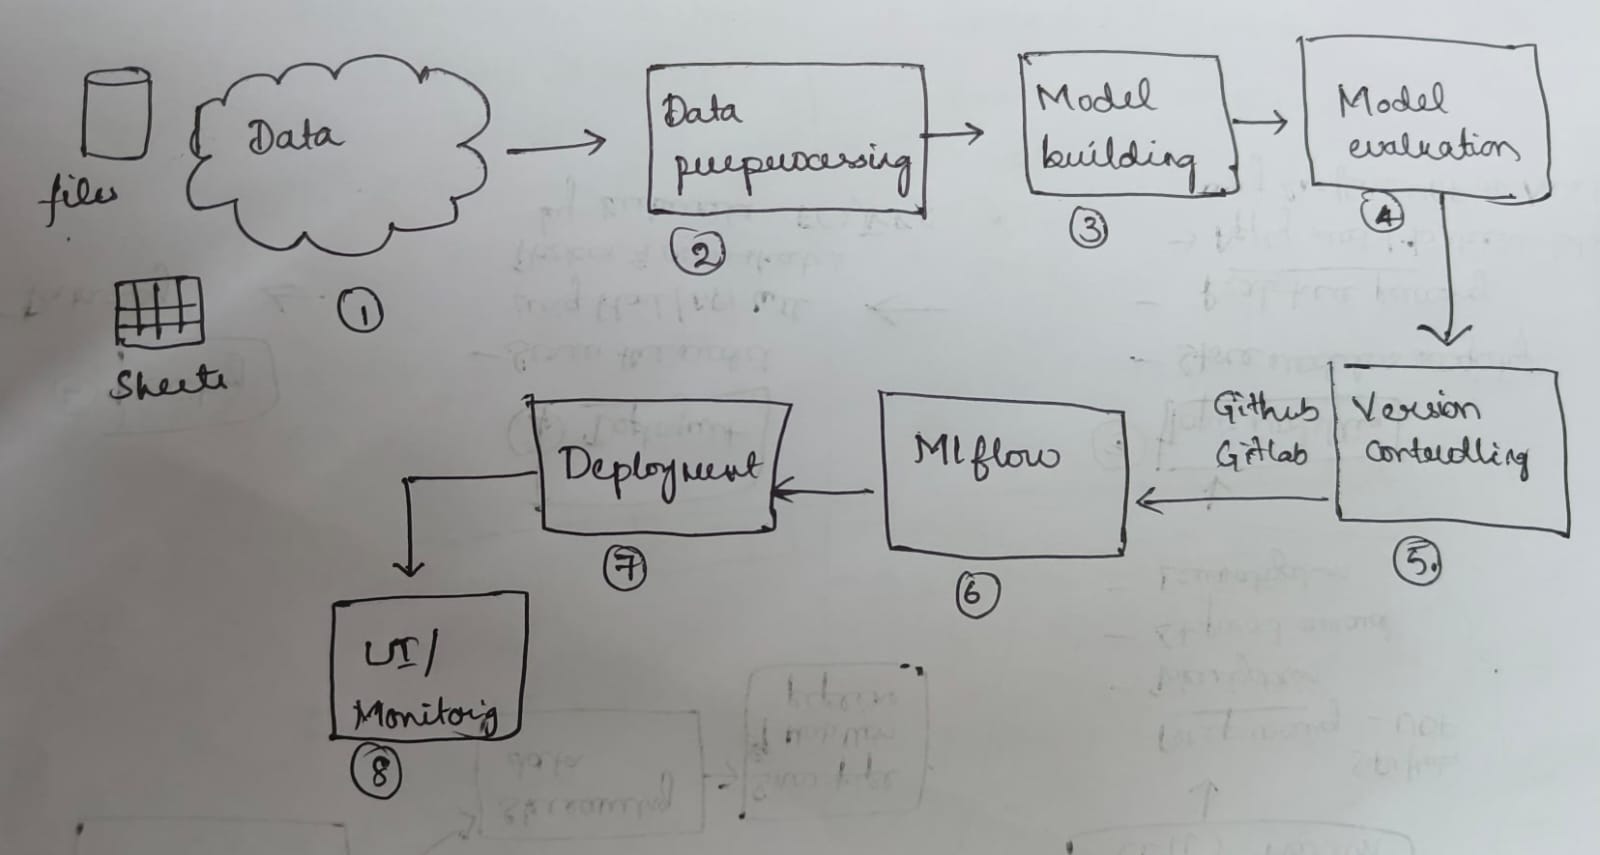 files
Data
Sheets
1
Data
preprocessing
2
Model
building
3
Model
evaluation
4
Github
Gitlab
Version
controlling
5.
Mlflow
6
Deployment
7
UI/
Monitorig
8